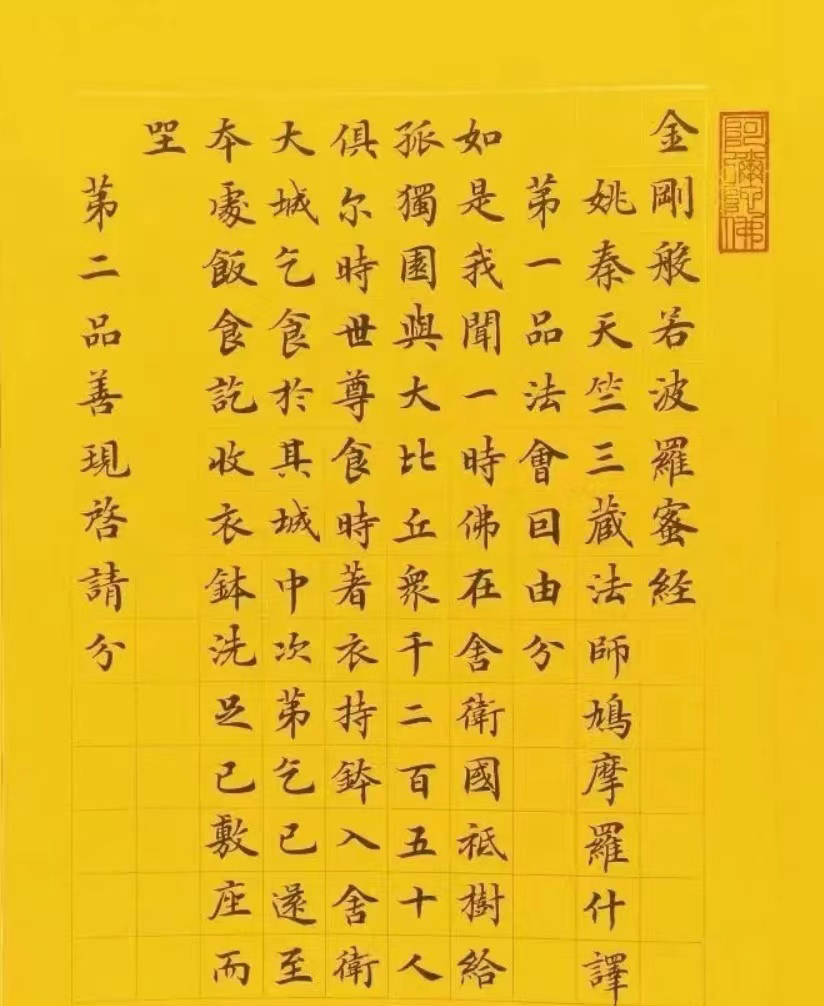 阿彌陀佛
金剛般若波羅蜜经
姚秦天竺三藏法師鳩摩羅什譯
第一品法會囙由分
如是我聞一時佛在舍衛國祇樹給
孤獨園與大比丘衆千二百五十人
俱尔時世尊食時著衣持鉢入舍衛
大城乞食於其城中次第乞已還至
本處飯食訖收衣鉢洗足已敷座而
坐
第二品善現啓請分